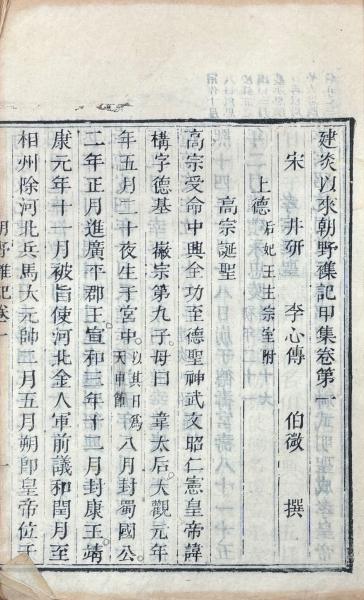 建炎以來朝野雜記甲集卷第一
宋 井研 李心傳 伯微 撰
上德 后妃王主宗室附
高宗誕聖
高宗受命中興全功至德聖神武文昭仁憲皇帝諱
構字德基 徽宗第九子母曰 韋太后大觀元年
年五月二十夜生于宮中以其日爲天申節八月封蜀國公
二年正月進廣平郡王宣和三年十二月封康王靖
康元年十一月被旨使河北金人軍前議和閏月至
相州除河北兵馬大元帥二月五月朔卽皇帝位于